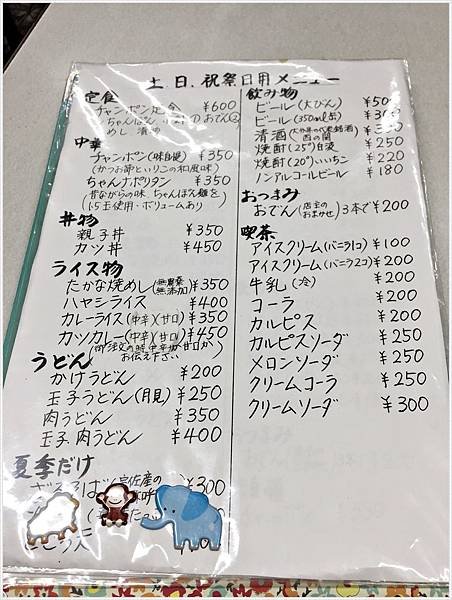 土、日、祝祭日用メニュー
定食
チャンポン定食 ¥600
ちゃんぽん、 のおでん②
めし 漬物
中華
チャンポン(味自慢) ¥350
(かつお節といりこの和風味)
ちゃんナポリタン ¥350
(昔ながらの味 ちゃんぽん麺を
1.5玉使用・ボリュームあり)
丼物
親子丼 ¥350
カツ丼 ¥450
ライス物
たかな焼めし(無農薬 無添加) ¥350
ハヤシライス ¥400
カレーライス(中辛)(甘口) ¥350
カツカレー(中辛)(甘口) ¥450
(御注文の時 中辛か 甘口か
お伝え下さい
うどん
かけうどん ¥200
玉子うどん(月見) ¥250
肉うどん ¥350
玉子肉うどん ¥400
夏季だけ
ざるそば 宇佐産の ¥300
飲み物
ビール(大びん) ¥50
ビール(350ml缶) ¥300
清酒(大分県の代表銘酒 西の関)
焼酎(25°)白波 ¥250
焼酎(20°)いいちこ ¥220
ノンアルコールビール ¥180
おつまみ
おでん(店主の おまかせ)3本で ¥200
喫茶
アイスクリーム(バニラ1コ) ¥100
アイスクリーム(バニラ2コ) ¥200
牛乳(冷) ¥200
コーラ ¥200
カルピス ¥200
カルピスソーダ ¥250
メロンソーダ ¥250
クリームコーラ ¥250
クリームソーダ ¥300